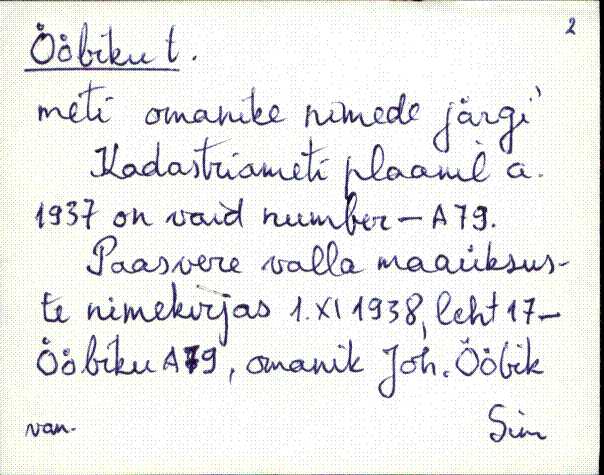 2
Ööbiku t.
meti omanike nimede järgi
Kadastriameti plaanil a.
1937 on vaid number – A79.
Paasvere valla maaüksus-
te nimekirjas 1.XI 1938, leht 17 –
Ööbiku A79, omanik Joh. Ööbik
van. Sim